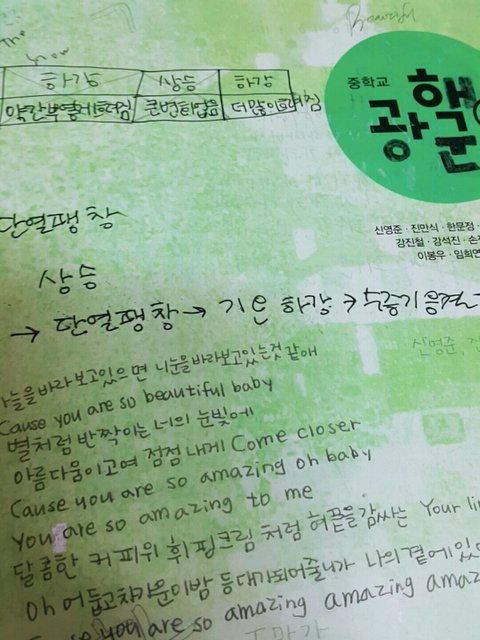 하강 상승 하강
약간뿌옇게흐려짐 큰변화없음 더많이흐려짐
중학교
신영준·진만식·한문정
강진철·강석진·손정
이봉우·임희연
단열팽창
상승
→ 단열팽창 → 기온 하강 → 수증기응결
신영준, 진
하늘을바라보고있으면 니눈을바라보고있는것같애
Cause you are so beautiful baby
별처럼 반짝이는 너의 눈빛에
아름다움이고여 점점 내게 Come closer
Cause you are so amazing oh baby
You are so amazing to me
달콤한 커피위 휘핑크림 처럼 혀끝을감싸는 Your li
Oh 어둡고차가운이밤 등대가되어줄니가 나의곁에있
you are so amazing amazing amaz